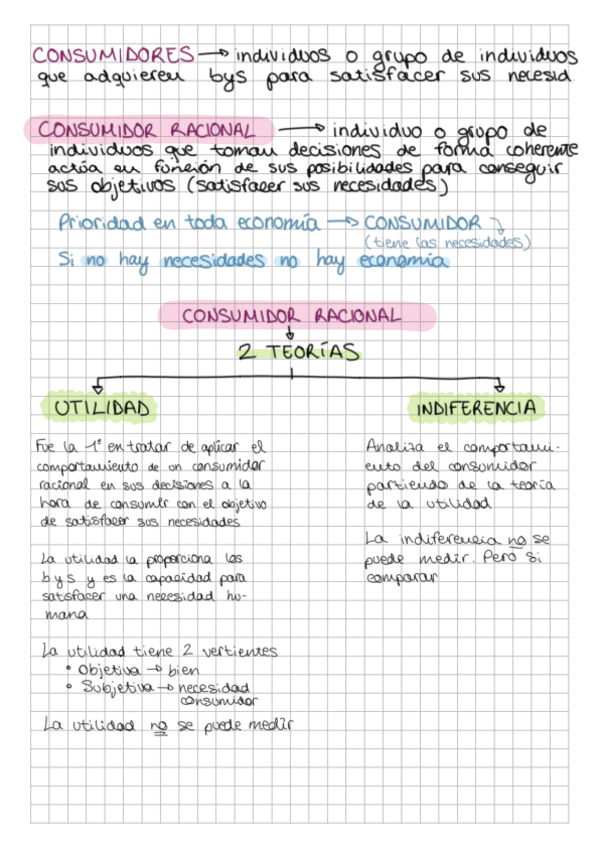 CONSUMIDORES → individuos o grupo de individuos
que adquieren bys para satisfacer sus necesid
CONSUMIDOR RACIONAL → individuo o grupo de
individuos que toman decisiones de forma coherente
actúa en función de sus posibilidades para conseguir
sus objetivos (satisfacer sus necesidades)
Prioridad en toda economía → CONSUMIDOR ↴
(tiene las necesidades)
Si no hay necesidades no hay economía
CONSUMIDOR RACIONAL
2 TEORÍAS
UTILIDAD
Fue la 1ª en tratar de aplicar el
comportamiento de un consumidor
racional en sus decisiones a la
hora de consumir con el objetivo
de satisfacer sus necesidades
La utilidad la proporciona los
b y s y es la capacidad para
satisfacer una necesidad hu-
mana
La utilidad tiene 2 vertientes
• Objetiva → bien
• Subjetiva → necesidad
consumidor
La utilidad no se puede medir
INDIFERENCIA
Analiza el comportami-
ento del consumidor
partiendo de la teoría
de la utilidad
La indiferencia no se
puede medir. Pero si
comparar